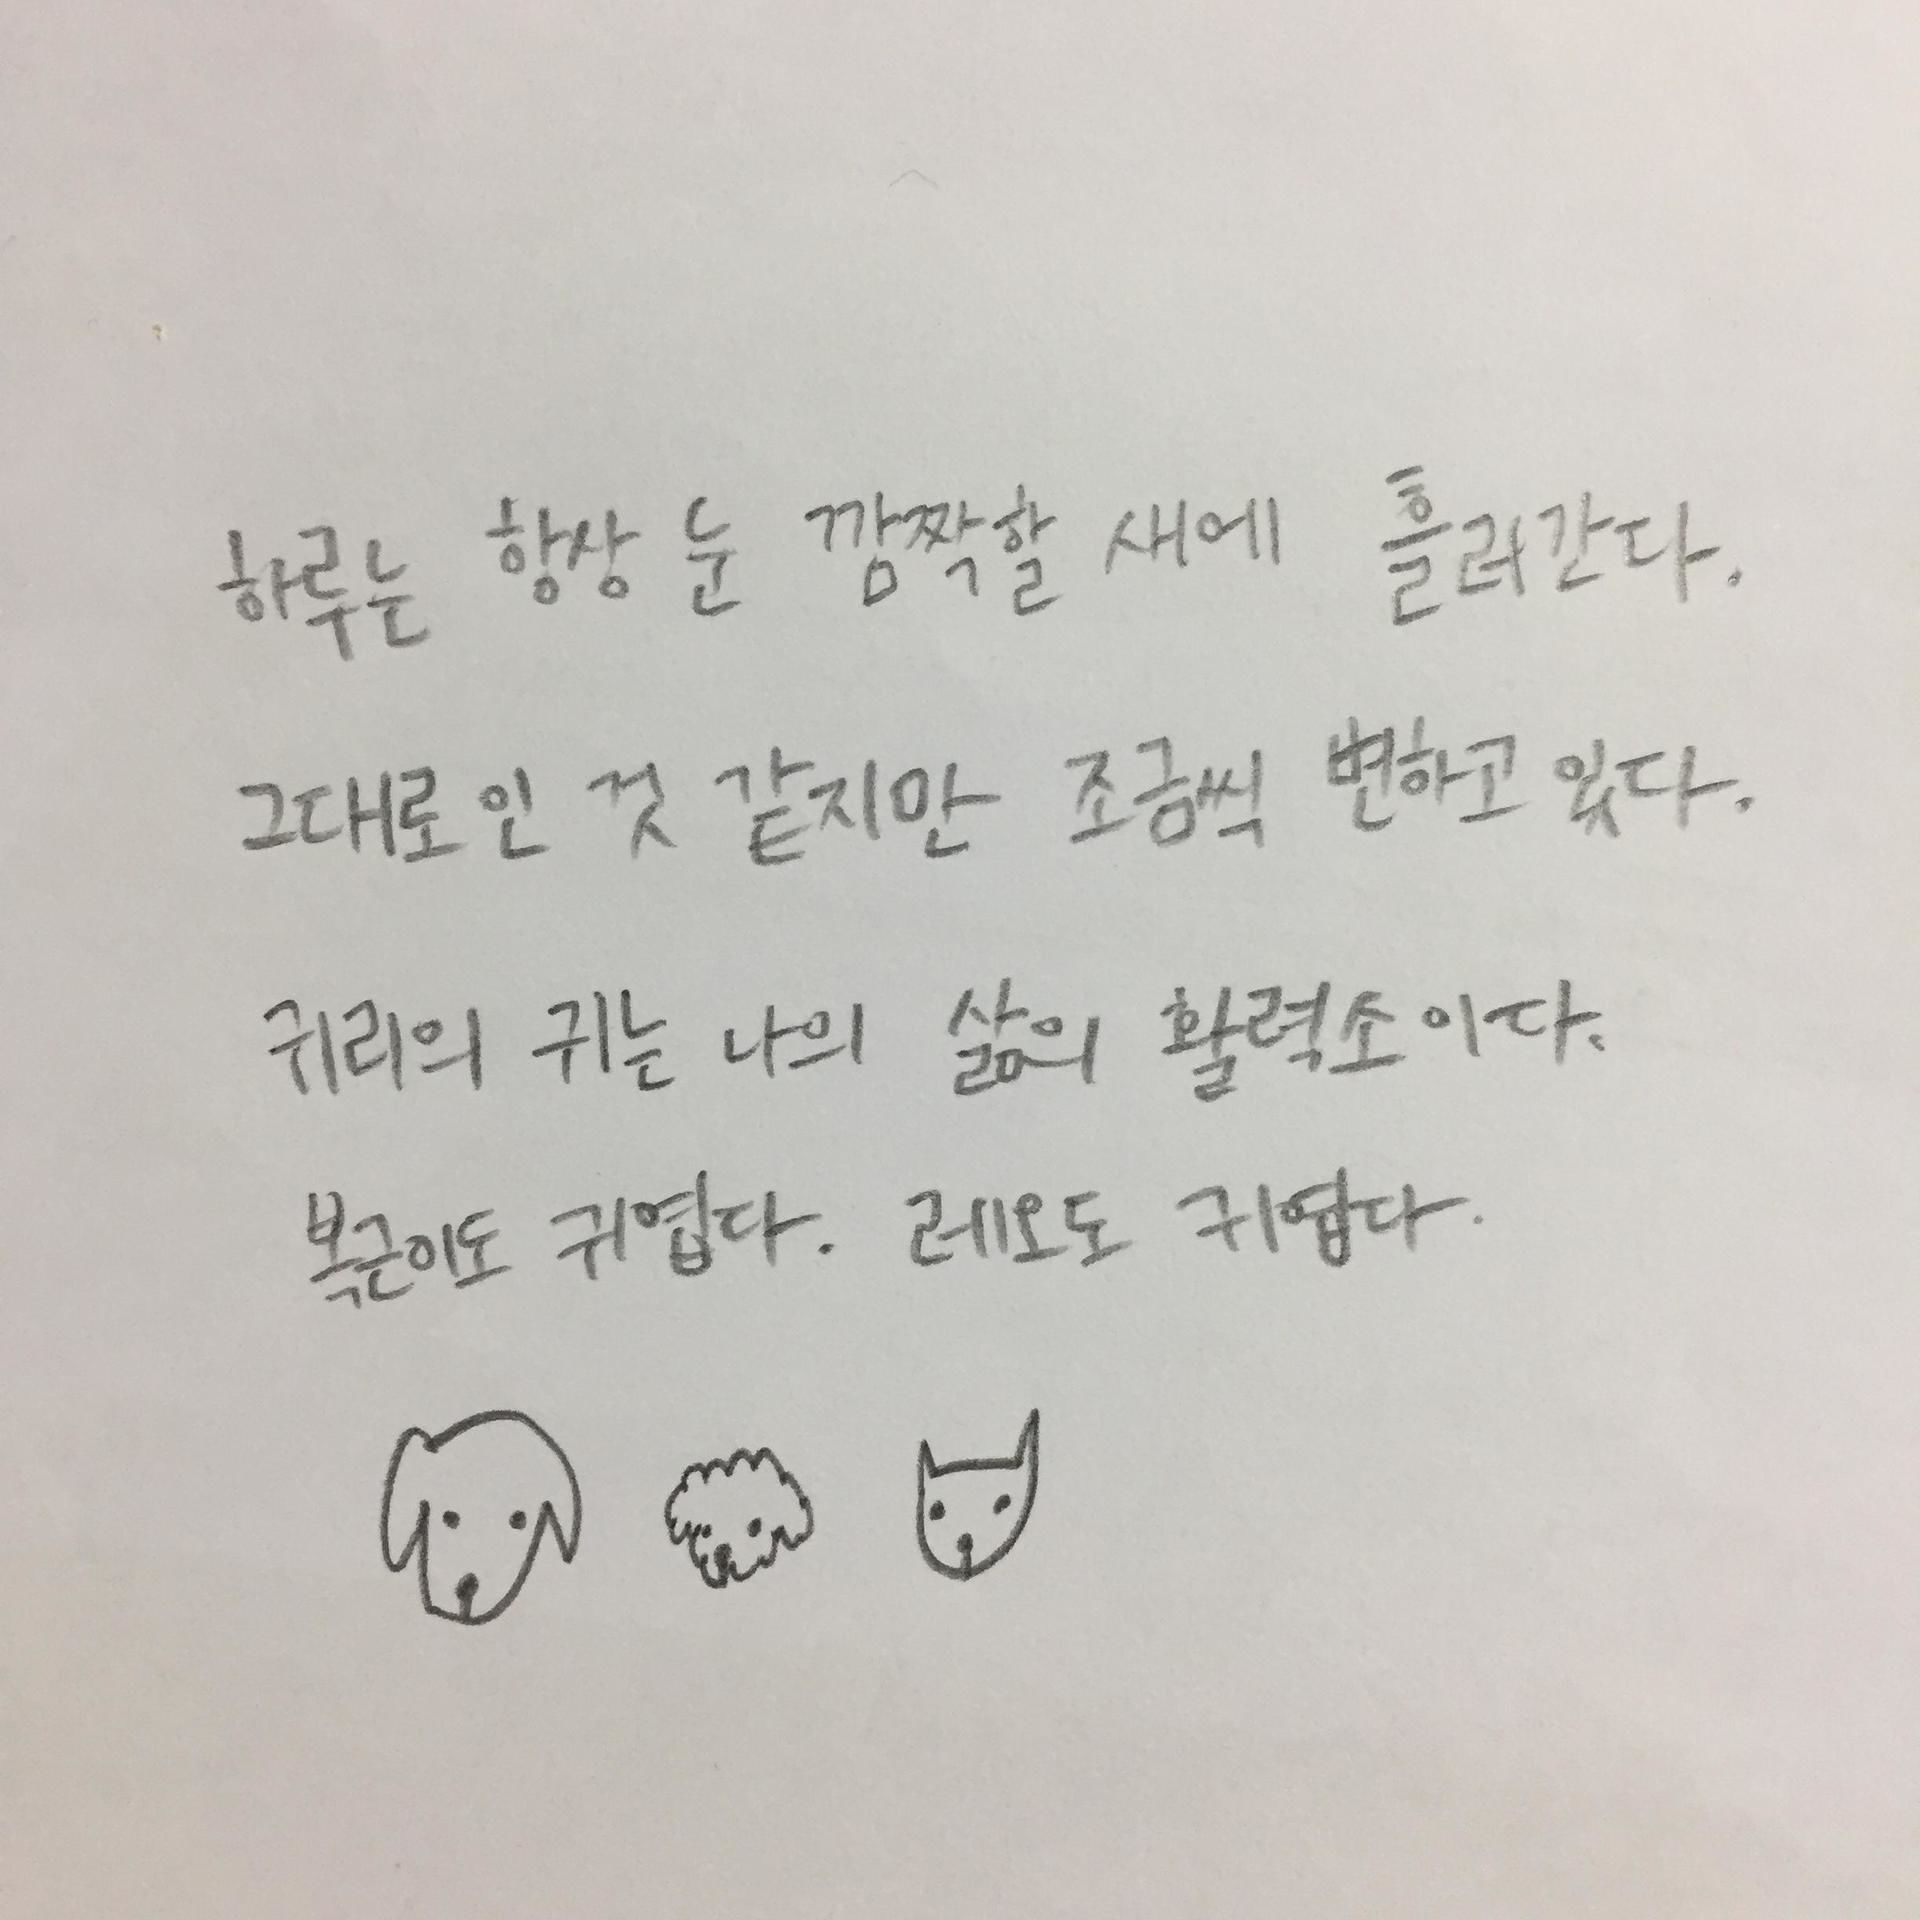 하루는 항상 눈 깜짝할 새에 흘러간다.
그대로인 것 같지만 조금씩 변하고 있다.
귀리의 귀는 나의 삶의 활력소이다.
복근이도 귀엽다. 레오도 귀엽다.